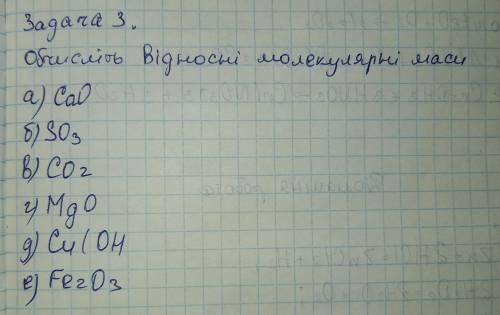 Задача 3.
Обчисліть Відносні молекулярні маси
а) CaO
б) SO3
в) CO2
г) MgO
д) Cu(OH
е) Fe2O3